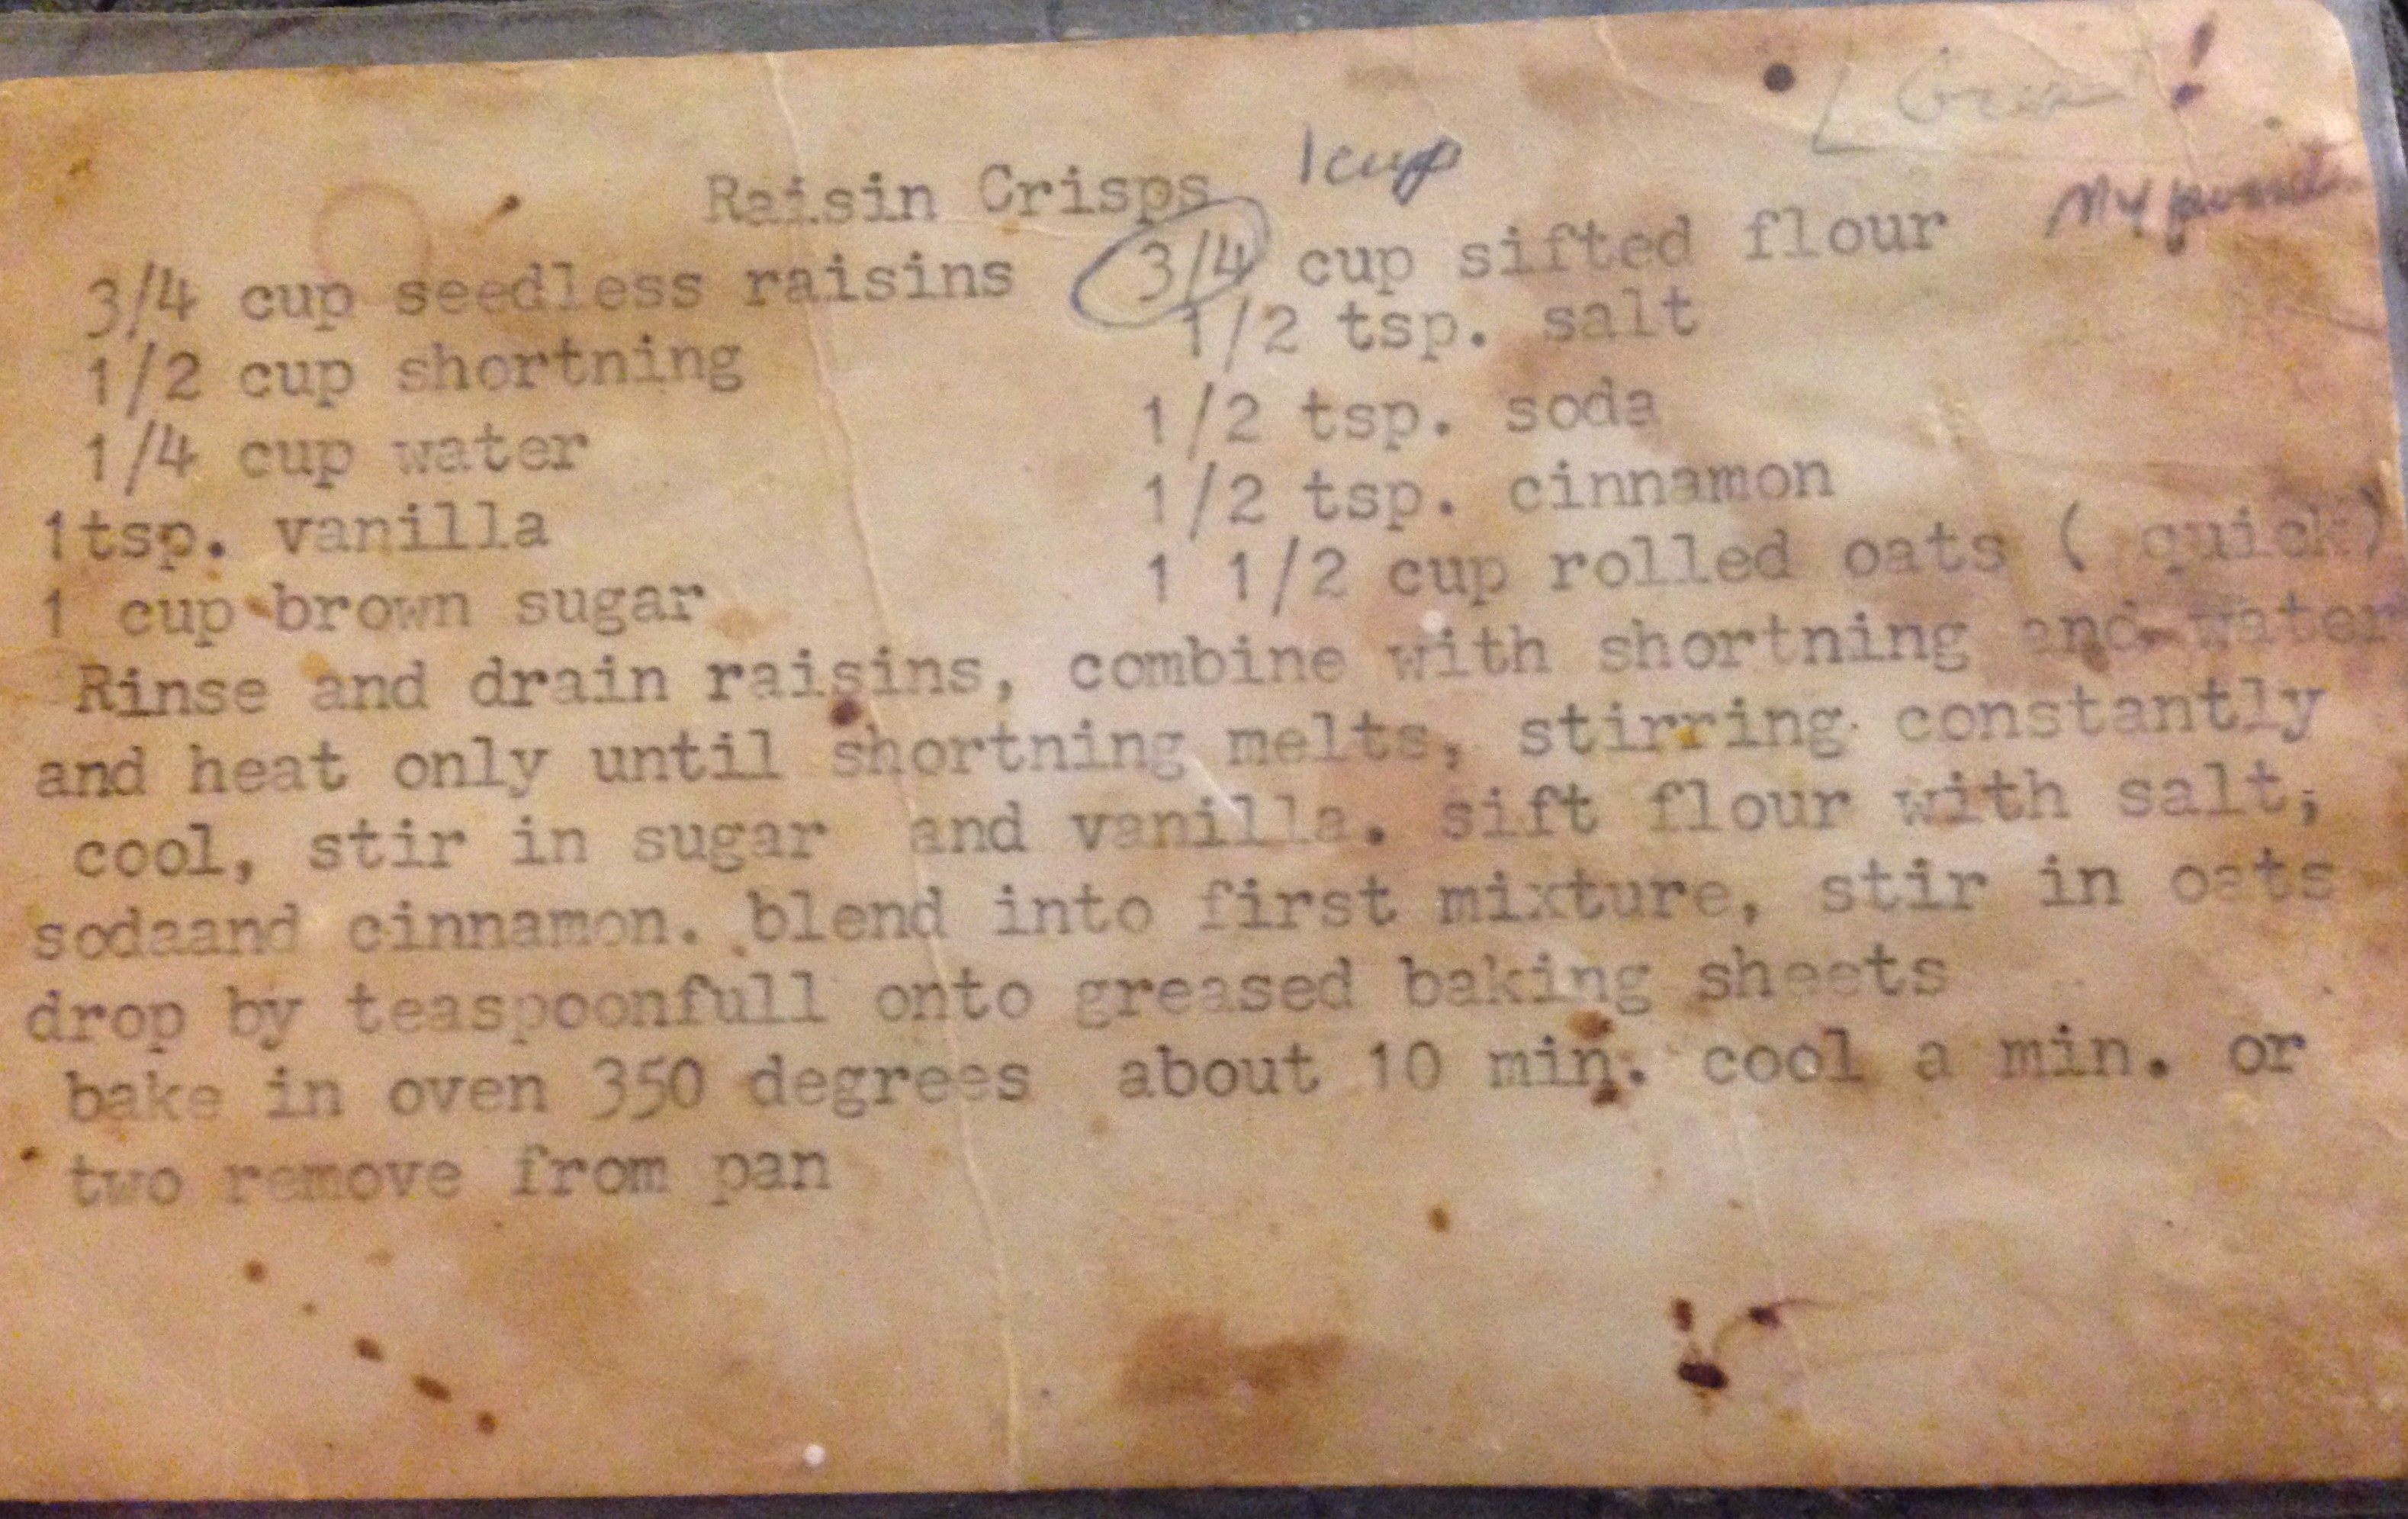 Raisin Crisps 1 cup
3/4 cup seedless raisins 3/4 cup sifted flour My
1/2 cup shortning 1/2 tsp. salt
1/4 cup water 1/2 tsp. soda
1tsp. vanilla 1/2 tsp. cinnamon
1 cup brown sugar 1 1/2 cup rolled oats ( quick)
Rinse and drain raisins, combine with shortning and water
and heat only until shortning melts, stirring constantly
cool, stir in sugar and vanilla. sift flour with salt,
sodaand cinnamon. blend into first mixture, stir in oats
drop by teaspoonfull onto greased baking sheets
bake in oven 350 degrees about 10 min. cool a min. or
two remove from pan